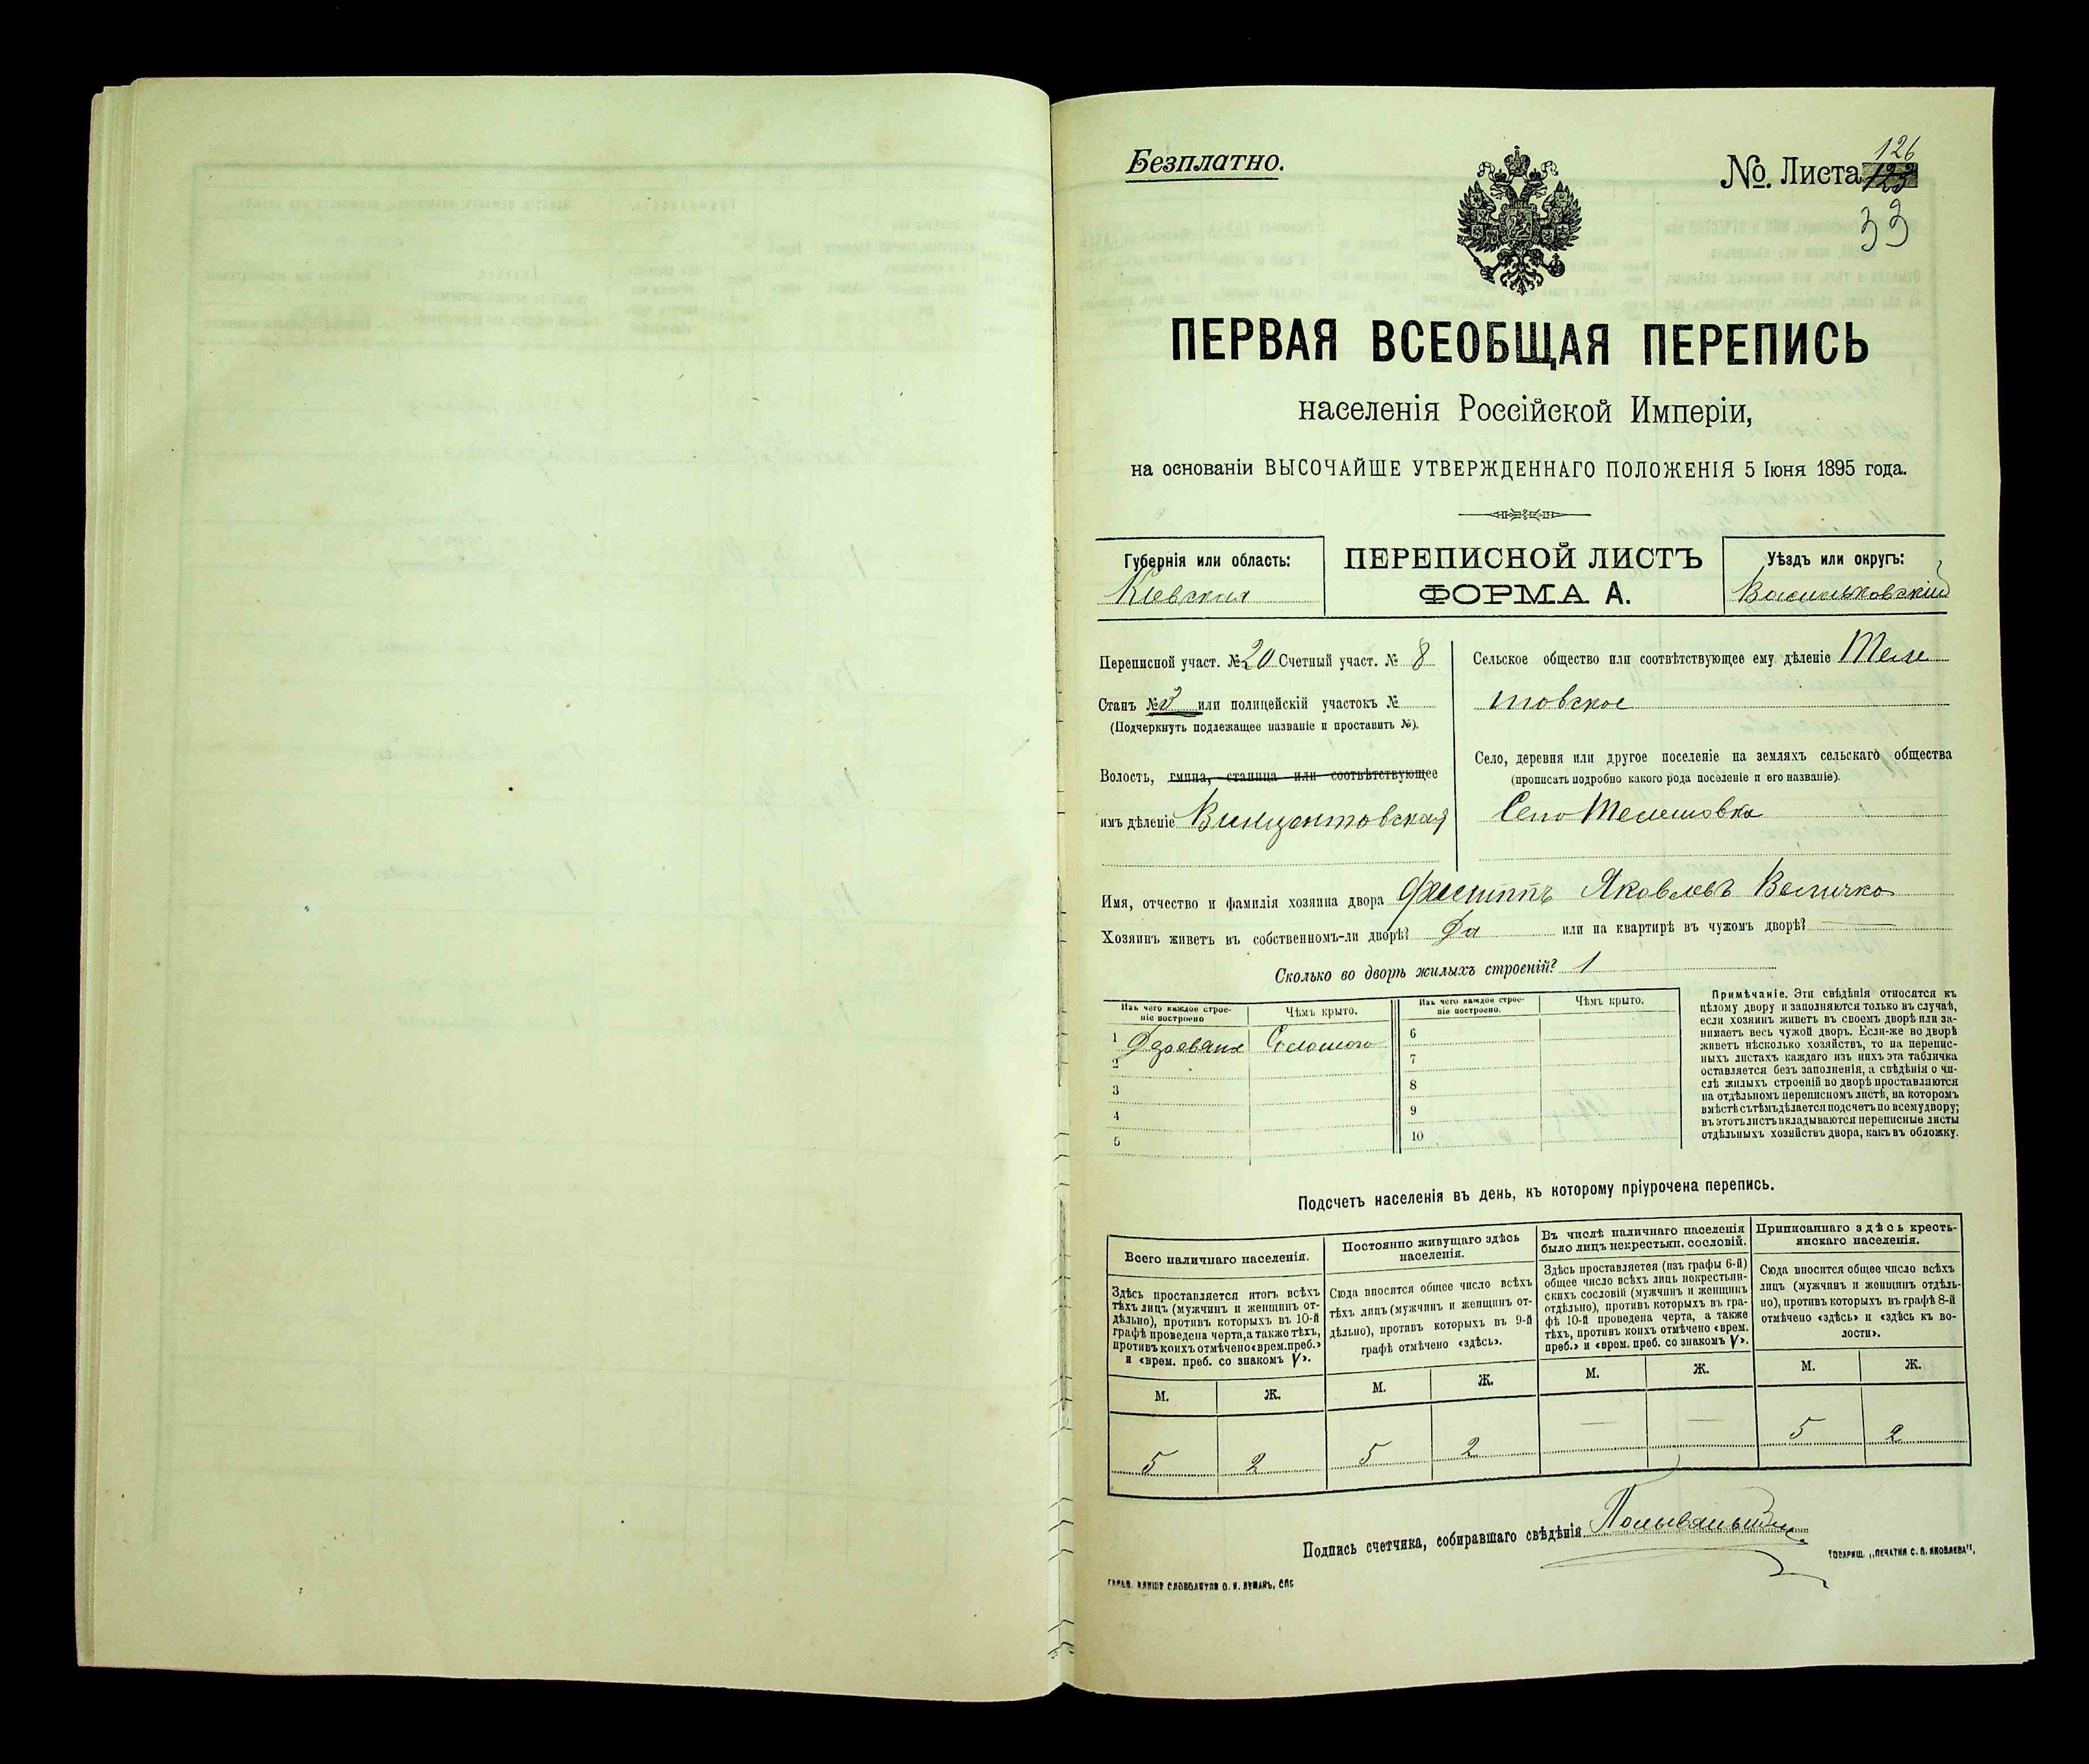 Безплатно.
№. Листа 126
33
ПЕРВАЯ ВСЕОБЩАЯ ПЕРЕПИСЬ
населенія Россійской Имперіи,
на основаніи ВЫСОЧАЙШЕ УТВЕРЖДЕННАГО ПОЛОЖЕНІЯ 5 Іюня 1895 года.
Губернія или область:
Кіевская
ПЕРЕПИСНОЙ ЛИСТЪ
ФОРМА А.
Уѣздъ или округъ:
Васильковскій
Переписной участ. № 20 Счетный участ. № 8
Станъ № 3 или полицейскій участокъ №
(Подчеркнуть подлежащее названіе и проставить №).
Волость, гмина, станица или соотвѣтствующее
имъ дѣленіе Винцентовская
Сельское общество или соотвѣтствующее ему дѣленіе Теле
шовское
Село, деревня или другое поселеніе на земляхъ сельскаго общества
(прописать подробно какого рода поселеніе и его названіе).
Село Телешовка
Имя, отчество и фамилія хозяина двора Филиппъ Яковлевъ Величко
Хозяинъ живетъ въ собственномъ-ли дворѣ? Да или на квартирѣ въ чужомъ дворѣ? —
Сколько во дворѣ жилыхъ строеній? 1
Изъ чего каждое строе-
ніе построено
Чѣмъ крыто.
Изъ чего каждое строе-
ніе построено.
Чѣмъ крыто.
1 Соломою
2
3
4
5
6
7
8
9
10
Примѣчаніе. Эти свѣдѣнія относятся къ
цѣлому двору и заполняются только въ случаѣ,
если хозяинъ живетъ въ своемъ дворѣ или за-
нимаетъ весь чужой дворъ. Если-же во дворѣ
живетъ нѣсколько хозяйствъ, то на перепис-
ныхъ листахъ каждаго изъ нихъ эта табличка
оставляется безъ заполненія, а свѣдѣнія о чи-
слѣ жилыхъ строеній во дворѣ проставляются
на отдѣльномъ переписномъ листѣ, на которомъ
вмѣстѣ съ тѣмъ дѣлается подсчетъ по всему двору;
въ этотъ листъ вкладываются переписные листы
отдѣльныхъ хозяйствъ двора, какъ въ обложку.
Подсчетъ населенія въ день, къ которому пріурочена перепись.
Всего наличнаго населенія.
Здѣсь проставляется итогъ всѣхъ
тѣхъ лицъ (мужчинъ и женщинъ от-
дѣльно), противъ которыхъ въ 10-й
графѣ проведена черта, а также тѣхъ,
противъ коихъ отмѣчено «врем. преб.»
и «врем. преб. со знакомъ V».
М. Ж.
5 2
Постоянно живущаго здѣсь
населенія.
Сюда вносится общее число всѣхъ
тѣхъ лицъ (мужчинъ и женщинъ от-
дѣльно), противъ которыхъ въ 9-й
графѣ отмѣчено «здѣсь».
М. Ж.
5 2
Въ числѣ наличнаго населенія
было лицъ некрестьян. сословій.
Здѣсь проставляется (изъ графы 6-й)
общее число всѣхъ лицъ некрестьян-
скихъ сословій (мужчинъ и женщинъ
отдѣльно), противъ которыхъ въ гра-
фѣ 10-й проведена черта, а также
тѣхъ, противъ коихъ отмѣчено «врем.
преб.» и «врем. преб. со знакомъ V».
М. Ж.
— —
Приписаннаго здѣсь кресть-
янскаго населенія.
Сюда вносится общее число всѣхъ
лицъ (мужчинъ и женщинъ отдѣль-
но), противъ которыхъ въ графѣ 8-й
отмѣчено «здѣсь» и «здѣсь къ во-
лости».
М. Ж.
5 2
Подпись счетчика, собиравшаго свѣдѣнія
Товарищ. „Печатня С. П. Яковлева",